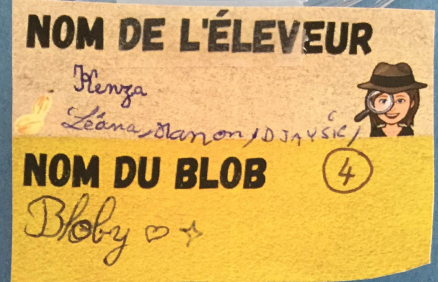 NOM DE L'ÉLEVEUR
Kenza
Léana, Manon, DJAYSIE,
NOM DU BLOB 4
Bloby